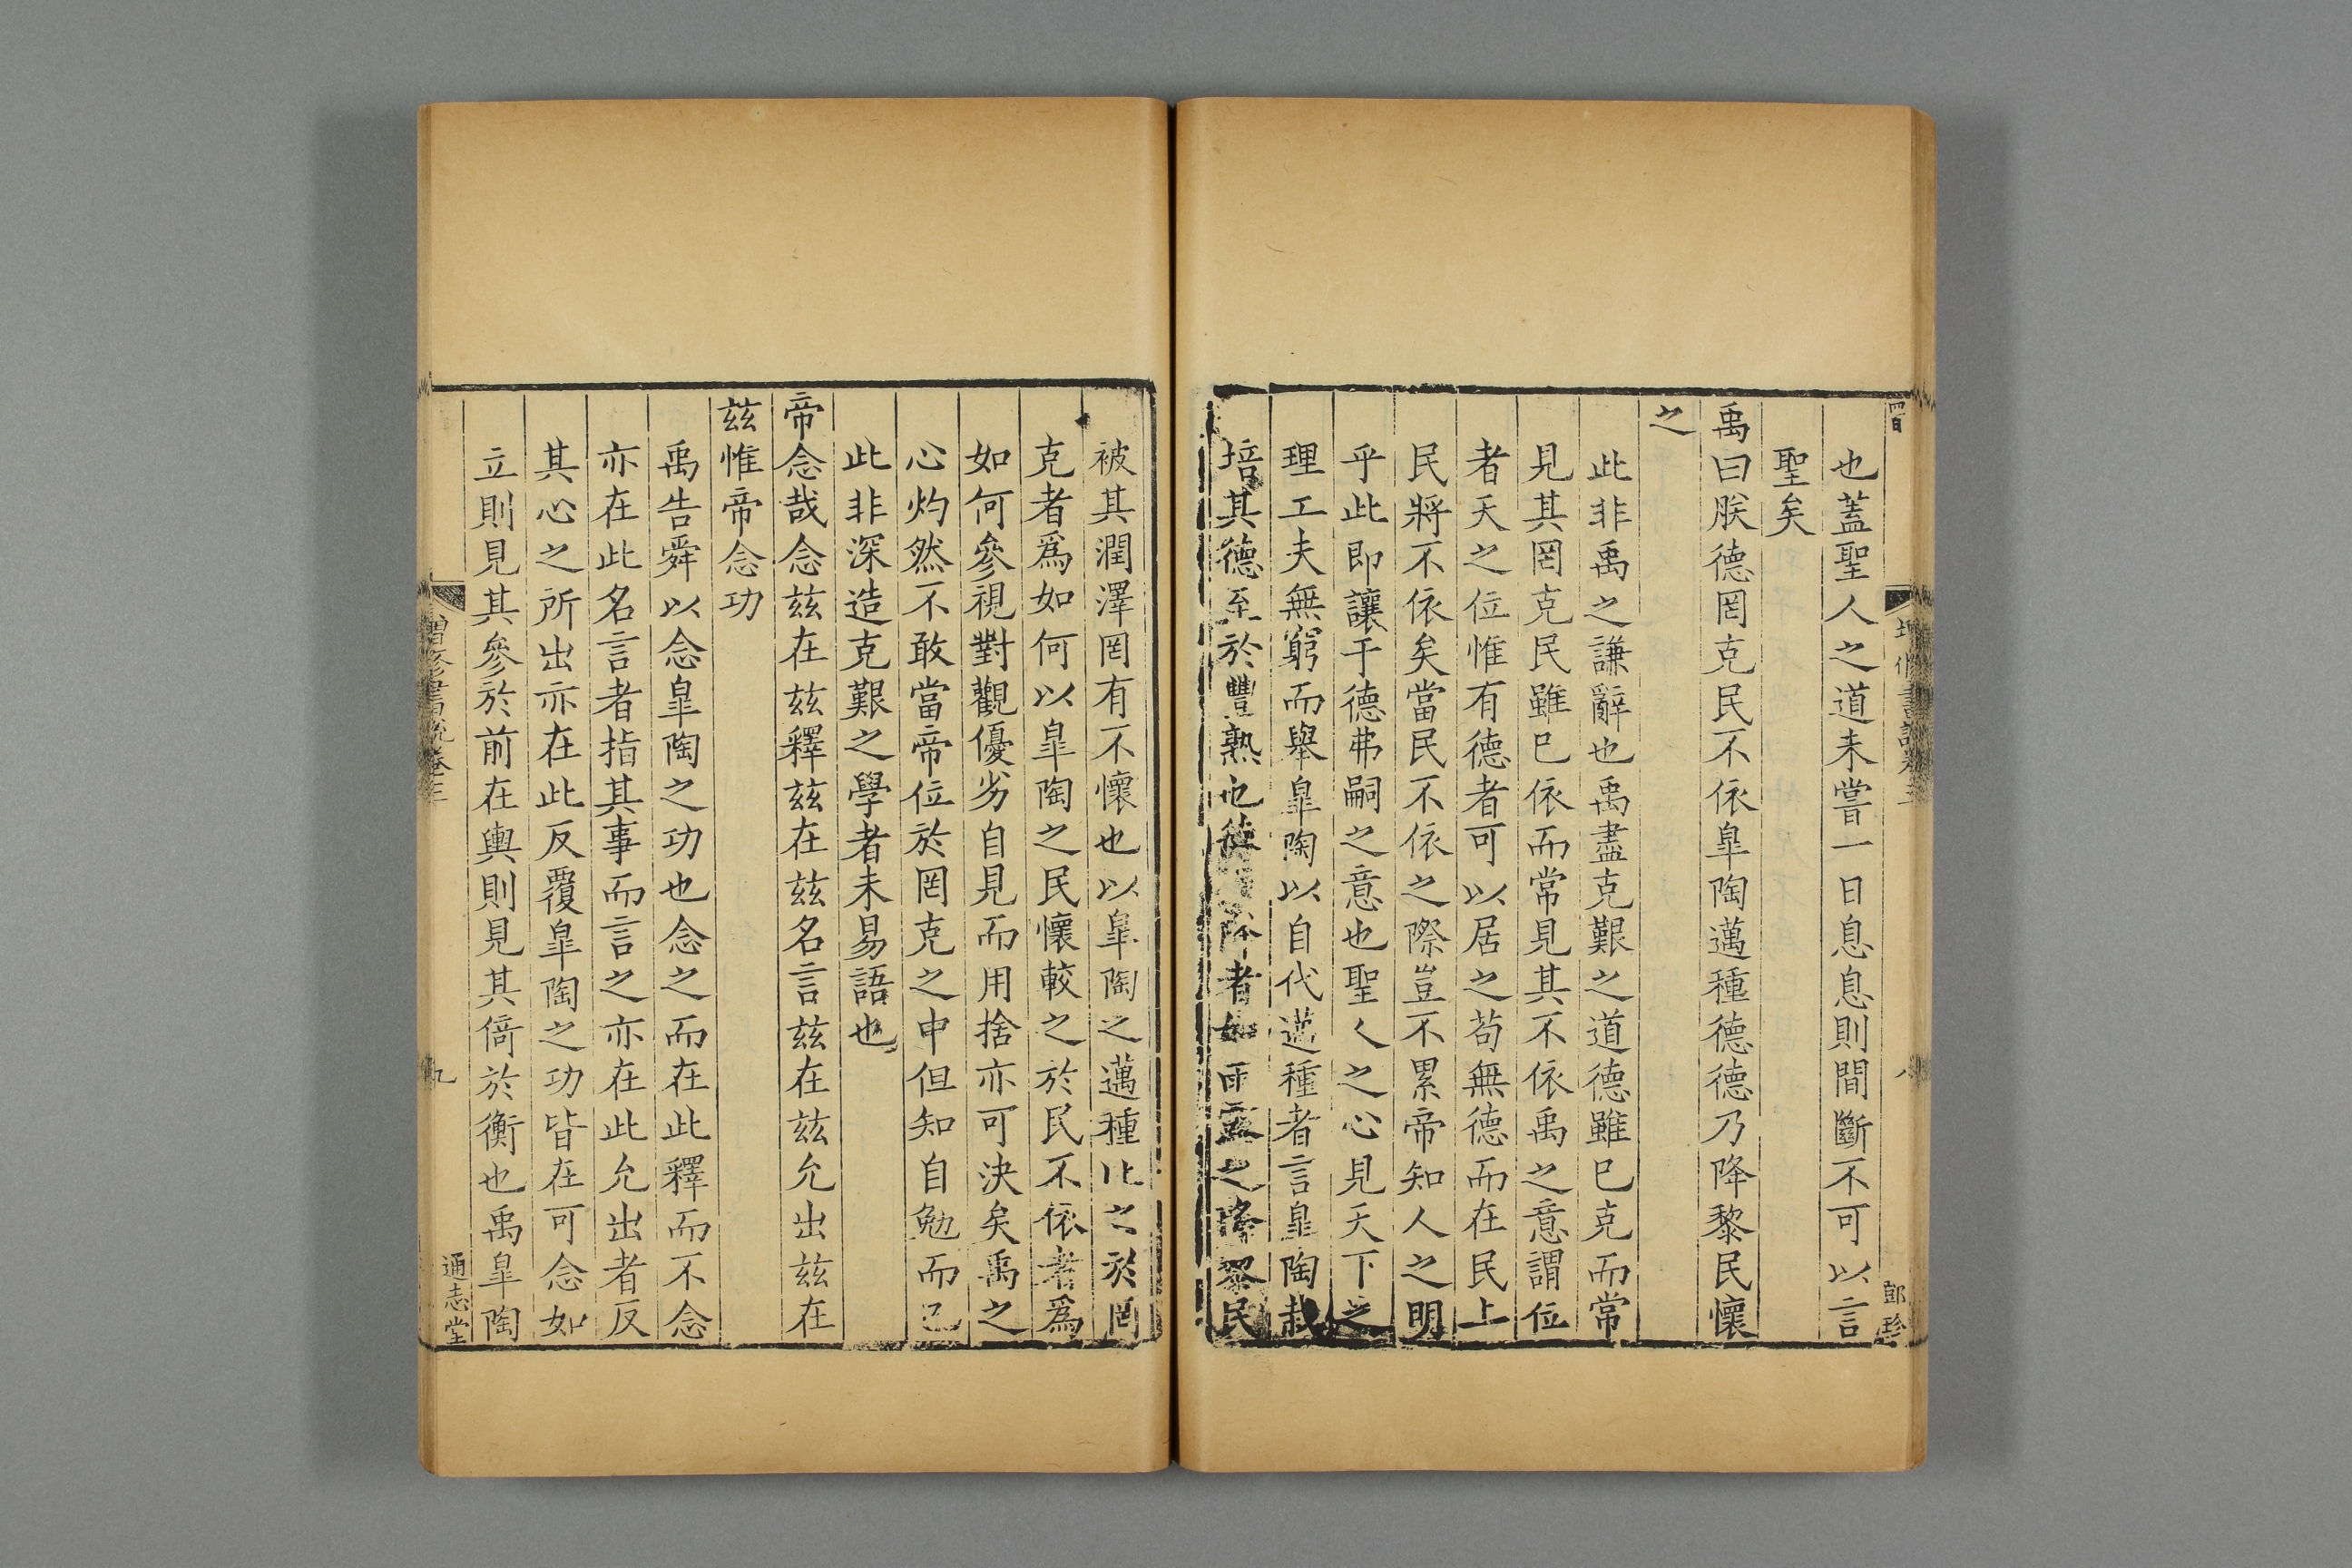 也蓋聖人之道未嘗一日息息則間斷不可以言
聖矣
禹曰朕德罔克民不依皐陶邁種德德乃降黎民懷
之
此非禹之謙辭也禹盡克艱之道德雖已克而常
見其罔克民雖已依而常見其不依禹之意謂位
者天之位惟有德者可以居之苟無德而在民上
民將不依矣當民不依之際豈不累帝知人之明
乎此即讓于德弗嗣之意也聖人之心見天下之
理工夫無窮而舉皐陶以自代邁種者言皐陶栽
培其德至於豐熟也德降者如雨露之降黎民
被其潤澤罔有不懷也以皐陶之邁種比之於罔
克者爲如何以皐陶之民懷較之於民不依者爲
如何參視對觀優劣自見而用捨亦可決矣禹之
心灼然不敢當帝位於罔克之中但知自勉而已
此非深造克艱之學者未易語也
帝念哉念兹在兹釋兹在兹名言兹在兹允出兹在
兹惟帝念功
禹告舜以念皐陶之功也念之而在此釋而不念
亦在此名言者指其事而言之亦在此允出者反
其心之所出亦在此反覆皐陶之功皆在可念如
立則見其參於前在輿則見其倚於衡也禹皐陶
增修書說卷三
九
通志堂